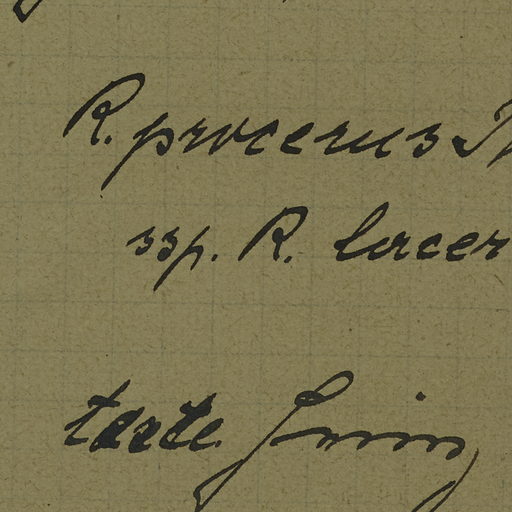 R. procerus
ssp. R. lacer
teste